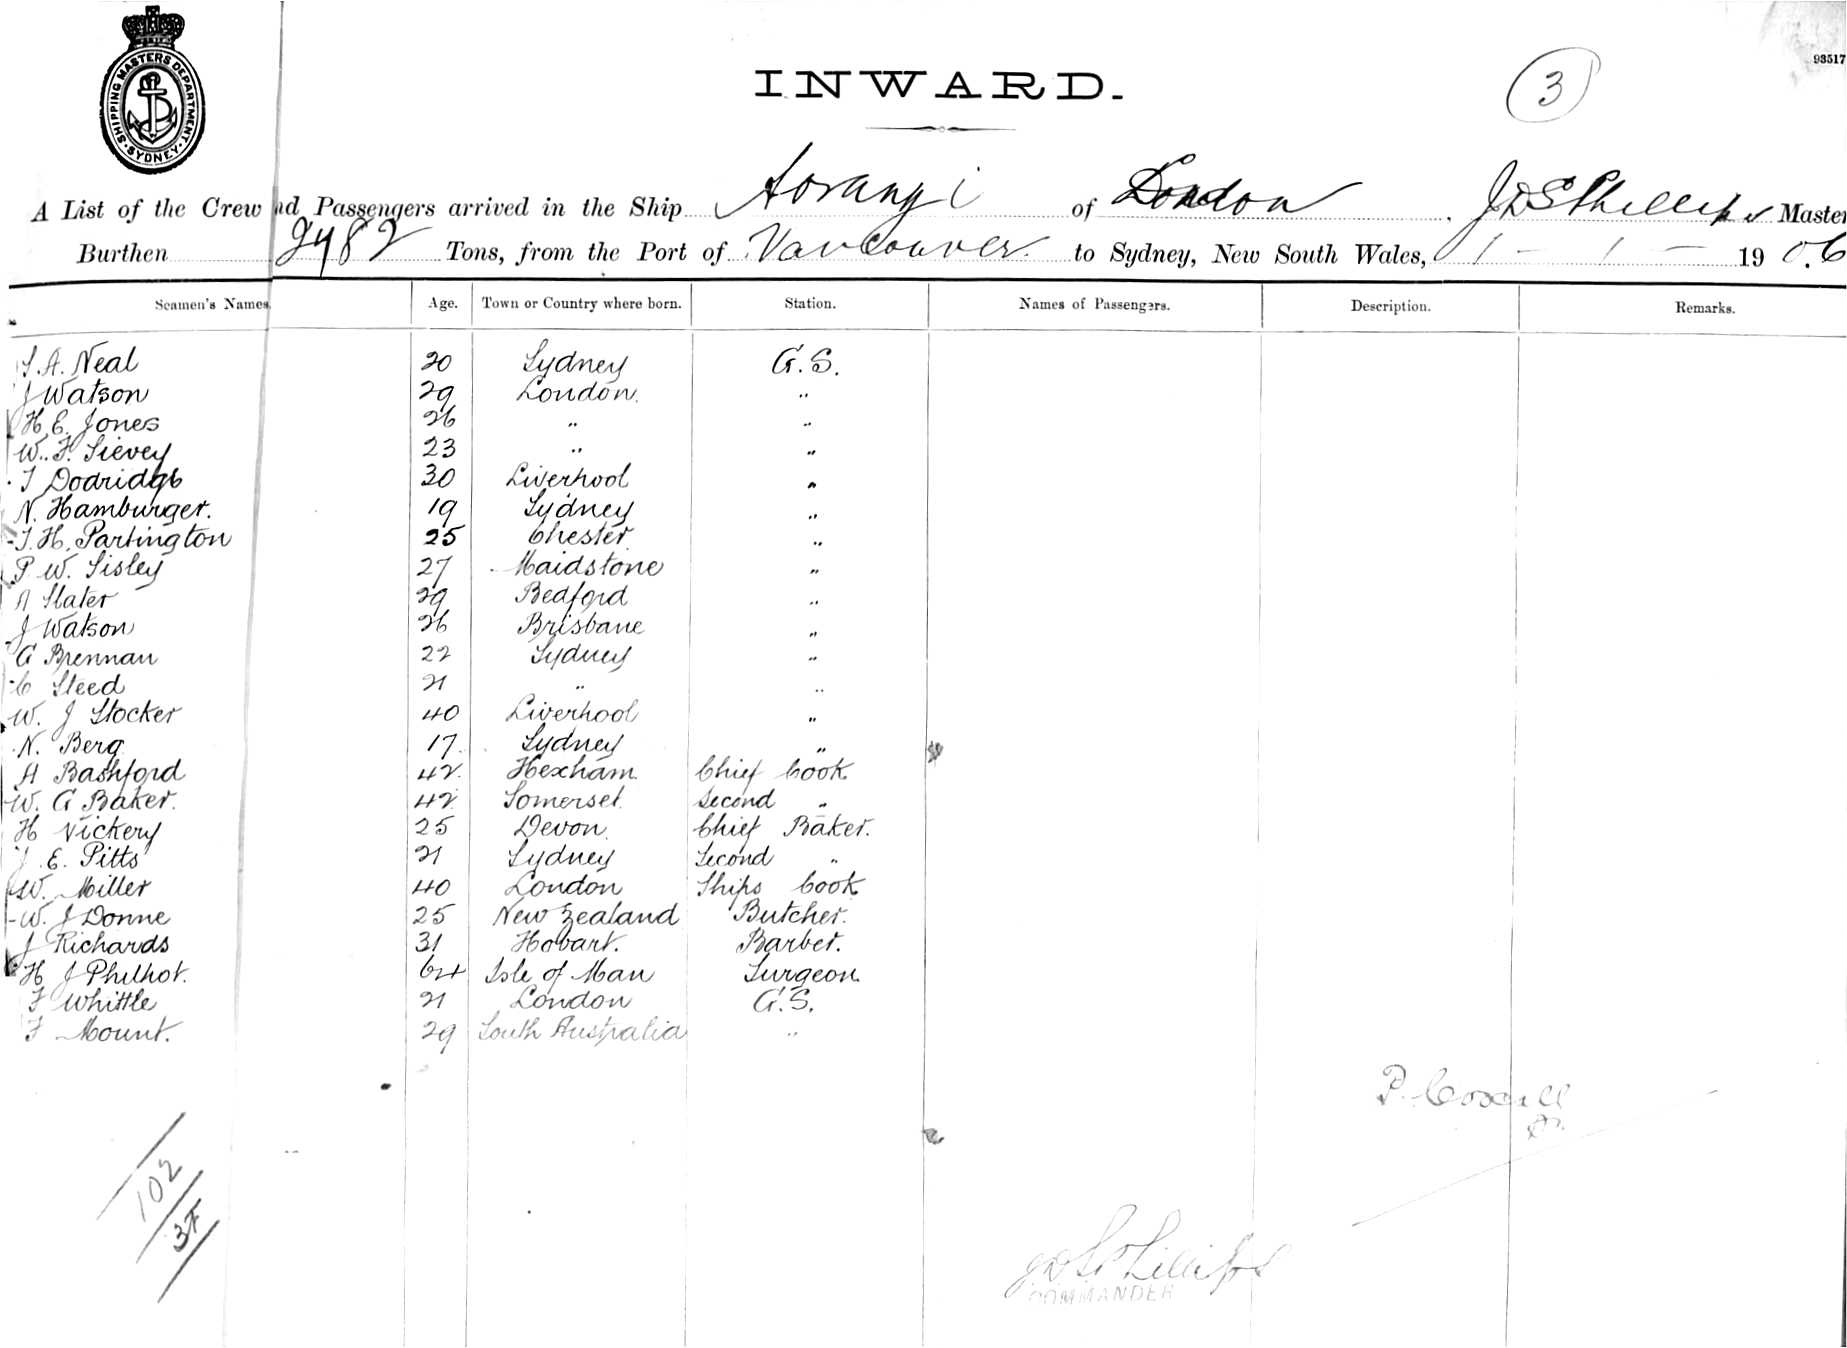 SHIPPING MASTERS DEPARTMENT
SYDNEY
93517
INWARD.
3
A List of the Crew nd Passengers arrived in the Ship Aorangi of London, J D S Phillips Master
Burthen 2782 Tons, from the Port of Vancouver to Sydney, New South Wales, 1 - 1 - 1906
Seamen's Names Age. Town or Country where born. Station. Names of Passengers. Description. Remarks.
S. A. Neal 20 Sydney G.S.
J Watson 29 London "
H E. Jones 26 " "
W. F. Sievey 23 " "
T Dodridge 30 Liverpool "
N. Hamburger. 19 Sydney "
T. H. Partington 25 Chester "
P W. Sisley 27 Maidstone "
A Slater 29 Bedford "
J Watson 26 Brisbane "
G Brennan 22 Sydney "
C Steed 21 " "
W. J Stocker 40 Liverpool "
N. Berg 17 Sydney "
A Bashford 42 Hexham Chief Cook
W. G Baker. 42 Somerset Second "
H Vickery 25 Devon Chief Baker.
J. E. Pitts 21 Sydney Second "
W. Miller 40 London Ships Cook
W. J Donne 25 New Zealand Butcher.
J Richards 31 Hobart. Barber.
H J Philpot. 64 Isle of Man Surgeon
F Whittle 21 London G.S.
F Mount. 29 South Australia "
102
J D S Phillips
COMMANDER